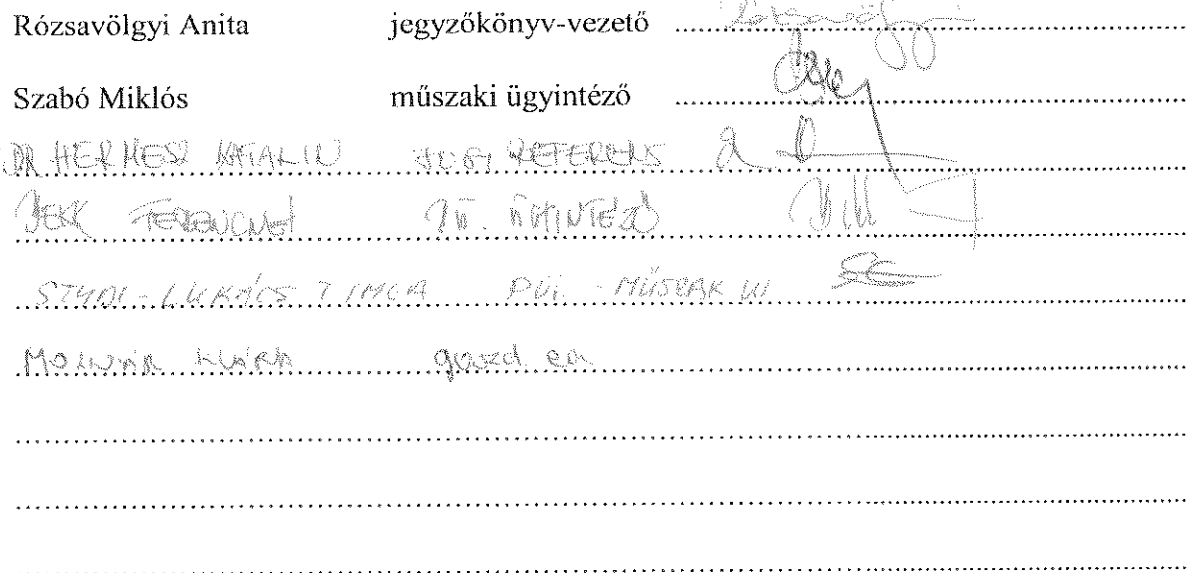 Rózsavölgyi Anita jegyzőkönyv-vezető
Szabó Miklós műszaki ügyintéző
DR HERMESZ KATALIN JOGI REFERENS
FERENCNÉ ÜGYINTÉZŐ
LUKÁCS TIMEA
MOLNÁR KLÁRA gazd. ea.